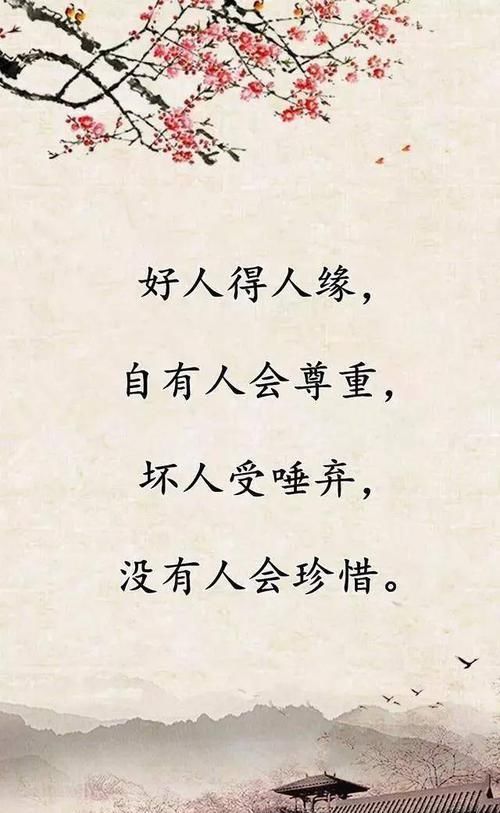 好人得人缘，
自有人会尊重，
坏人受唾弃，
没有人会珍惜。